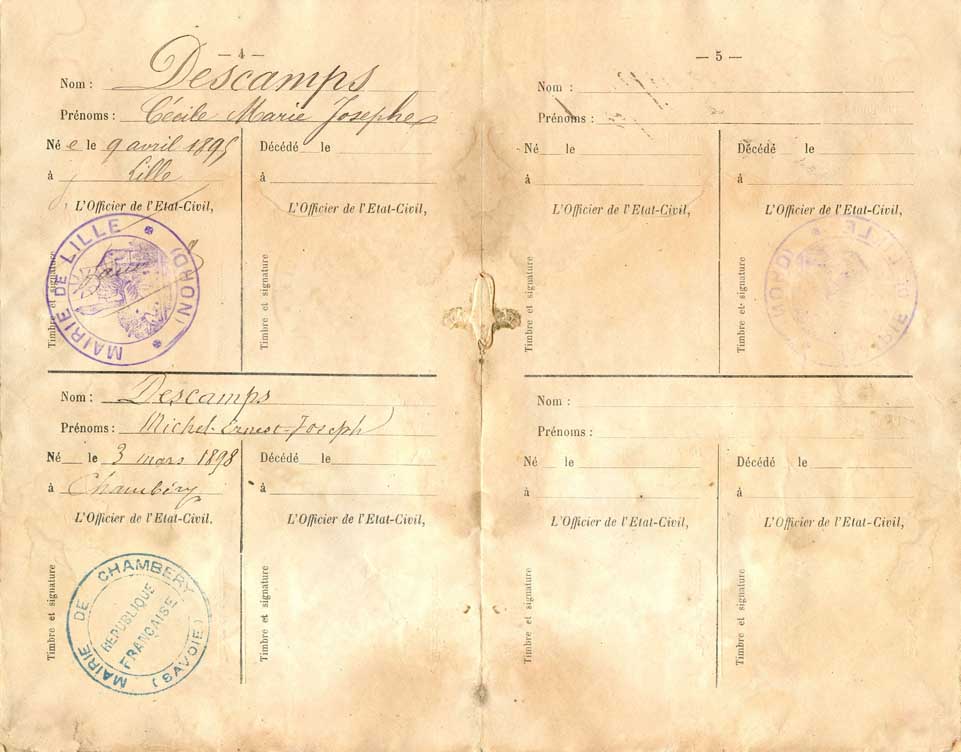 — 4 —
Nom : Descamps
Prénoms : Cécile Marie Josephe
Né e le 9 avril 1895
Décédé le
à Lille
à
L'Officier de l'Etat-Civil,
L'Officier de l'Etat-Civil,
Timbre et signature
MAIRIE DE LILLE (NORD)
Timbre et signature
Nom : Descamps
Prénoms : Michel-Ernest-Joseph
Né le 3 mars 1898
Décédé le
à Chambéry
à
L'Officier de l'Etat-Civil.
L'Officier de l'Etat-Civil,
Timbre et signature
MAIRIE DE CHAMBERY (SAVOIE)
REPUBLIQUE
FRANÇAISE
Timbre et signature
— 5 —
Nom :
Prénoms :
Né le
Décédé le
à
à
L'Officier de l'Etat-Civil,
L'Officier de l'Etat-Civil,
Timbre et signature
Timbre et signature
Nom :
Prénoms :
Né le
Décédé le
à
à
L'Officier de l'Etat-Civil,
L'Officier de l'Etat-Civil,
Timbre et signature
Timbre et signature